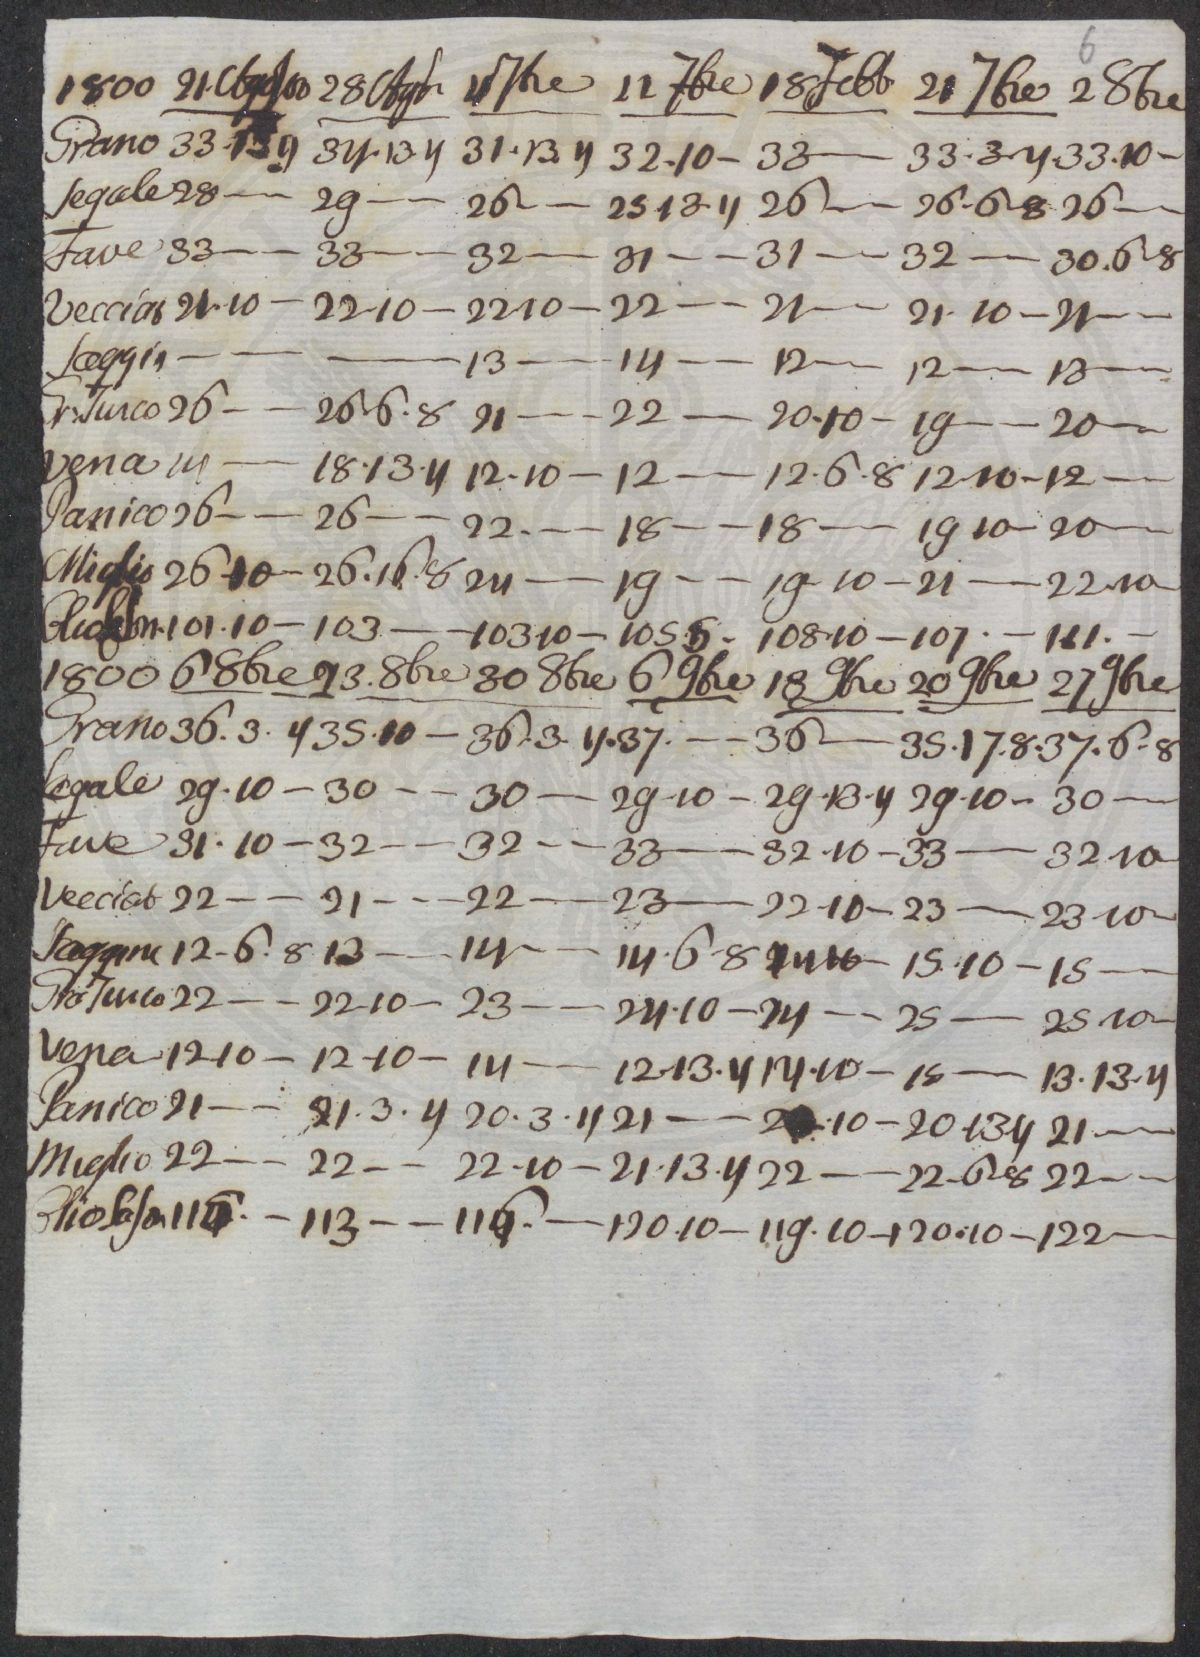 6
1800 21 Agosto 28 Agto 4 7bre 11 7bre 18 7bre 21 7bre 2 8bre
Grano 33.13.4 34.13.4 31.13.4 32.10— 33—— 33.3.4. 33.10—
Segale 28—— 29—— 26—— 25.13.4 26—— 26.6.8 26——
Fave 33—— 33—— 32—— 31—— 31—— 32—— 30.6.8
Veccia 21.10— 22.10— 22.10— 22—— 21—— 21.10— 21——
Saggin —— —— 13—— 14—— 12—— 12—— 13——
Gr. Turco 26—— 26.6.8 21—— 22—— 20.10— 19—— 20——
Vena 14—— 18.13.4 12.10— 12—— 12.6.8 12.10— 12——
Panico 26—— 26—— 22.—— 18—— 18—— 19.10— 20——
Miglio 26.10— 26.16.8 24—— 19—— 19.10— 21—— 22.10—
Olio 101.10— 103—— 103.10— 105 108.10— 107.— 111.—
1800 6 8bre 23.8bre 30 8bre 6 9bre 13 9bre 20 9bre 27 9bre
Grano 36.3.4 35.10— 36.3.4. 37.—— 36—— 35.17.8. 37.6.8
Segale 29.10— 30—— 30—— 29.10— 29.13.4 29.10— 30——
Fave 31.10— 32—— 32—— 33—— 32.10— 33—— 32.10—
Veccia 22—— 21—— 22—— 23—— 22.10— 23—— 23.10—
Saggina 12.6.8 13—— 14—— 14.6.8 15.10— 15——
Gro Turco 22—— 22.10— 23—— 24.10— 24—— 25—— 25.10—
Vena 12.10— 12.10— 14—— 12.13.4 14.10— 15—— 13.13.4
Panico 21—— 21.3.4 20.3.4 21—— .10— 20.13.4 21——
Miglio 22—— 22—— 22.10— 21.13.4 22—— 22.6.8 22——
Olio 113—— 120.10— 119.10— 120.10— 122——